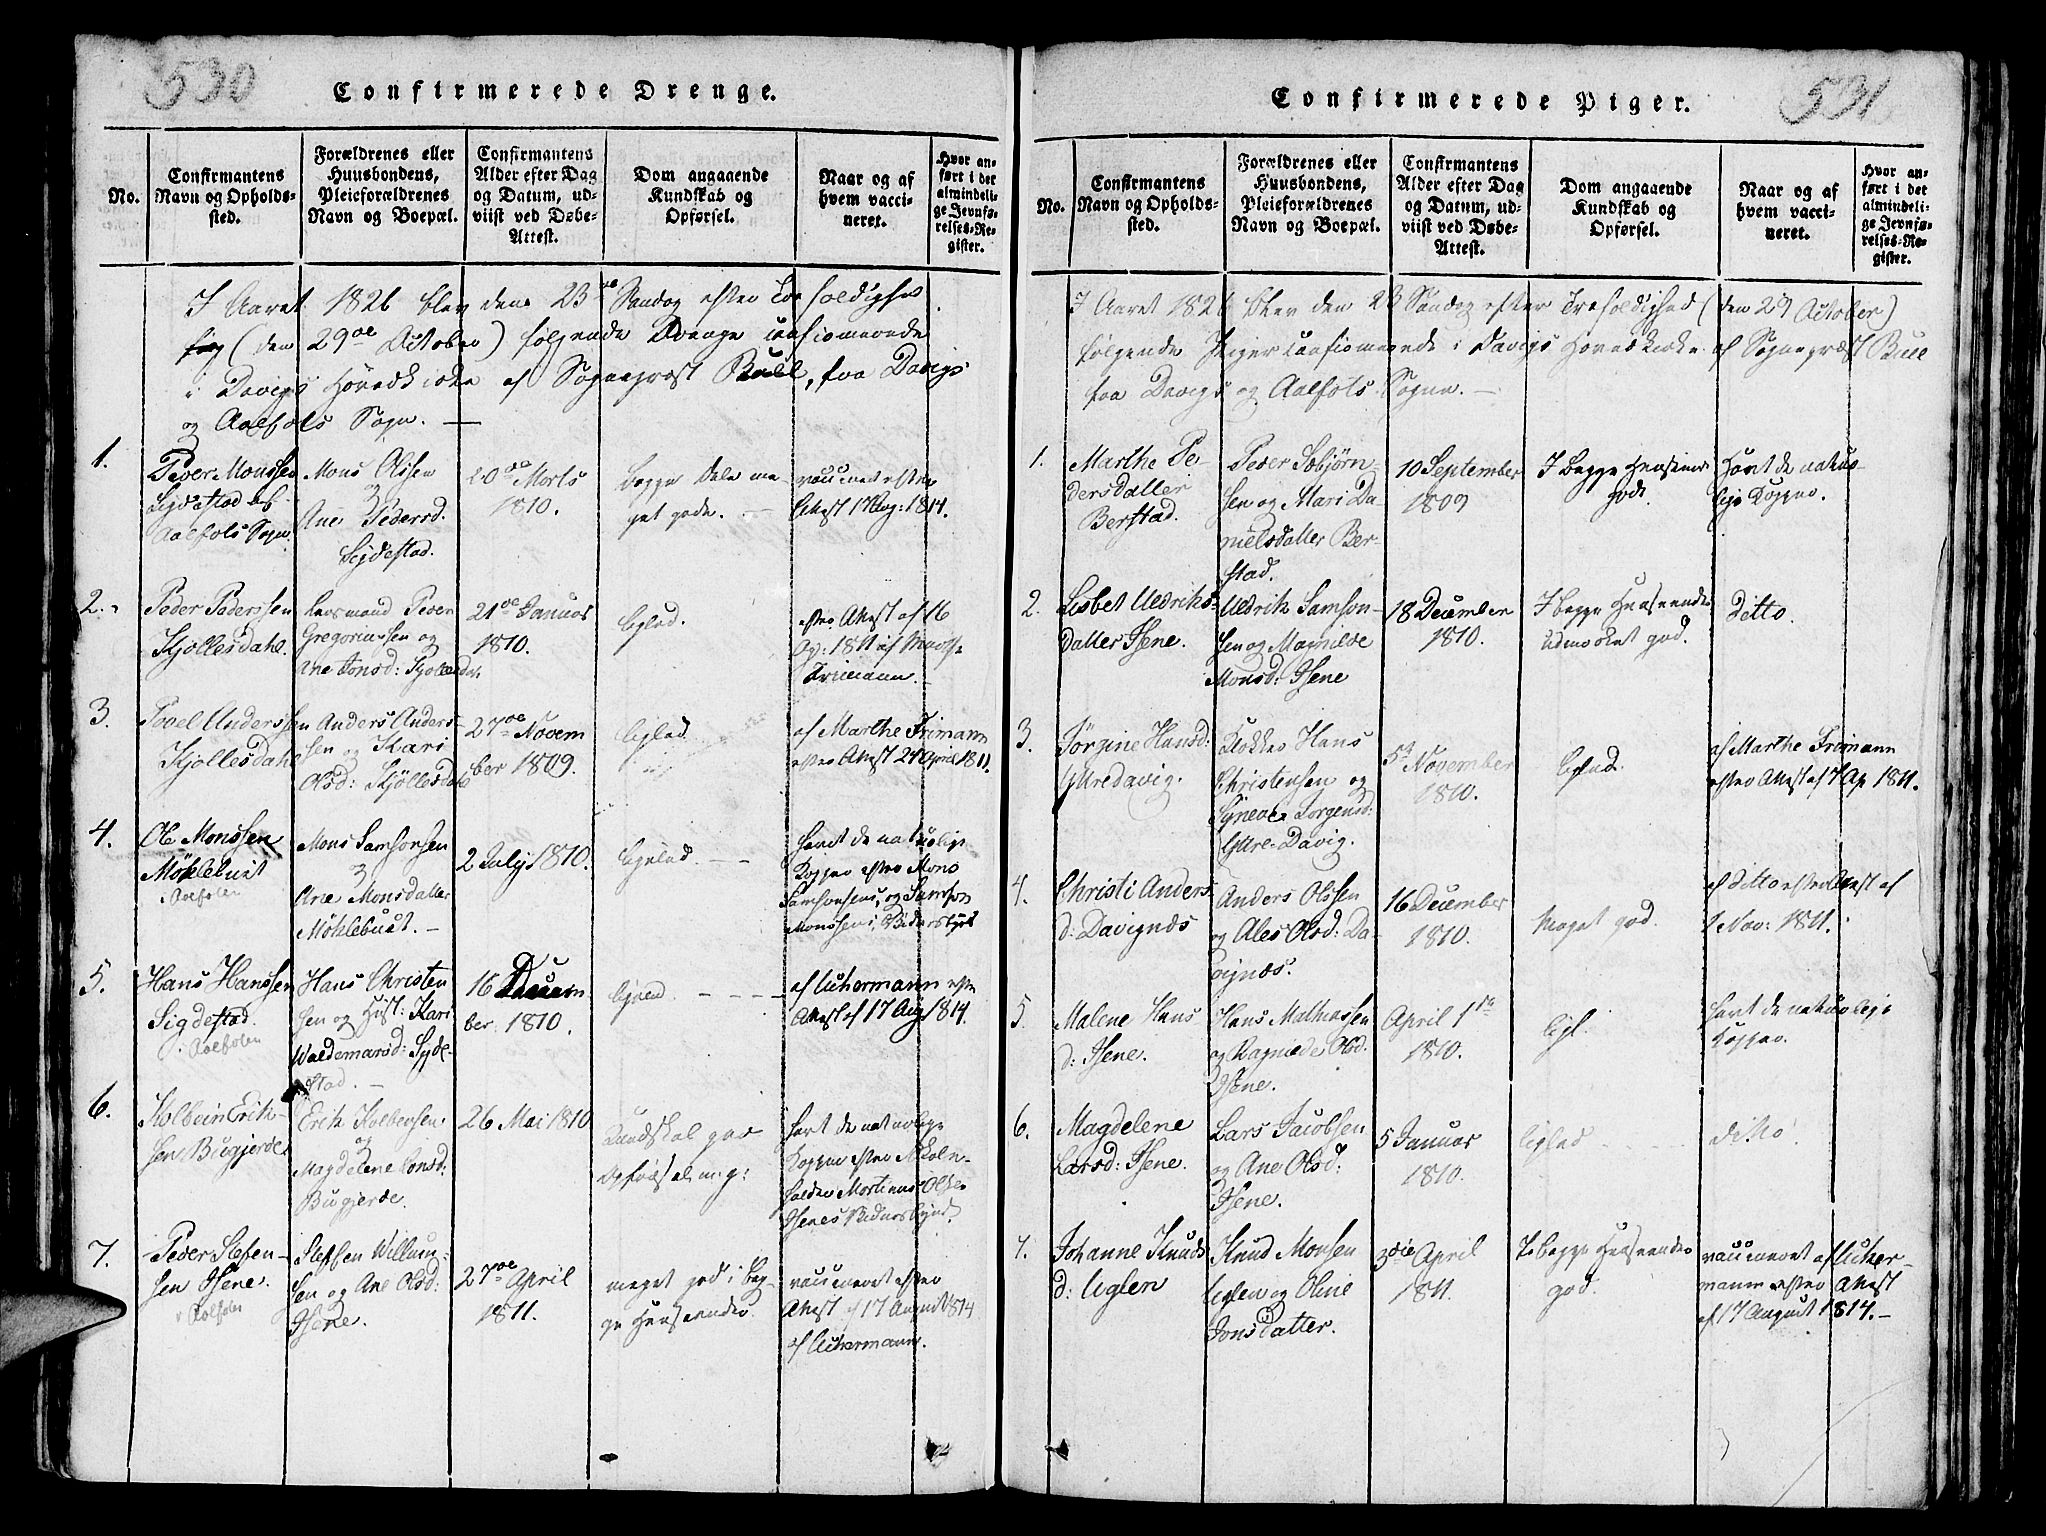 530
Confirmerede Drenge.
No.
Confirmantens
Navn og Opholds-
sted.
Forældrenes eller
Huusbondens,
Pleieforældrenes
Navn og Boepæl.
Confirmantens
Alder efter Dag
og Datum, ud-
viist ved Døbe-
Attest.
Dom angaaende
Kundskab og
Opførsel.
Naar og af
hvem vacci-
neret.
Hvor an-
ført i det
almindeli-
ge Jevnfø-
relses-Re-
gister.
I Aaret 1826 blev den 23de Søndag efter Trefoldighed
(den 29de October) følgende Drenge confirmerede
i Davigs Hovedkirke af Sognepræst Buell, fra Davigs
og Aalfots Sogn. —
1.
Peder Monssen
Sigdestad af
Aalfots Sogn.
Mons Olsen
og
Ane Pedersd.
Sigdestad.
20de Morts
1810.
begge dele me-
get gode. —
vaccineret efter
Attest 17 Aug: 1814.
2.
Peder Pederssen
Kjøllesdahl.
Peder
Gregoriussen og
Ane Jonsd:
21de Januar
1810.
ligeled.
efter Attest af 16
Ap: 1811 af Marthe
Frimann.
3.
Povel Anderssen
Kjøllesdahl
Anders Anders-
sen og Kari
Olsd: Kjøllesdahl
27de Novem
ber 1809.
ligeled.
af Marthe Frimann
efter Attest 24 April 1811.
4.
Ole Monssen
Møhlebust
i Aalfoten
Mons Samsonsen
og
Ane Monsdatter
Møhlebust. —
2 July 1810.
ligeled. — —
havt de naturlige
Kopper efter Mons
Samsonsens, og Samson
Monssens Vidnesbyrd
5.
Hans Hanssen
Sigdestad.
i Aalfoten
Hans Christen
sen og Hust: Kari
Woldemarsd: Sigde-
stad. —
16 Decem
ber 1810.
ligeled. — — —
af Uchermann efter
Attest af 17 Aug 1814.
6.
Kolbein Erik-
sen Bugjerde
Erik Kolbensen
og
Magdelene Jonsd:
Bugjerde.
26 Mai 1810
Kundskab god
Opførsel m: g:
havt de naturlige
Kopper efter
Mortinus Olsen
Isenes Vidnesbyrd.
7.
Peder Stefen-
sen Isene.
i Aalfoten
Steffen Willum-
sen og Ane Olsd:
Isene.
27de April
1811.
meget god i beg-
ge Henseender.
vaccineret efter
Attest af 17 August 1814
af Uchermann.
Confirmerede Piger.
531
No.
Confirmantens
Navn og Opholds-
sted.
Forældrenes eller
Huusbondens,
Pleieforældrenes
Navn og Boepæl.
Confirmantens
Alder efter Dag
og Datum, ud-
viist ved Døbe-
Attest.
Dom angaaende
Kundskab og
Opførsel.
Naar og af
hvem vacci-
neret.
Hvor an-
ført i det
almindeli-
ge Jevnfø-
relses-Re-
gister.
I Aaret 1826 blev den 23 Søndag efter Trefoldighed (den 29 October)
følgende Piger confirmerede i Davigs Hovedkirke af Sognepræst Buell
fra Davigs og Aalfots Sogne. —
1.
Marthe Pe-
dersdatter
Berstad.
Peder Esbjørn-
sen og Mari Da-
nielsdatter Ber-
stad.
10 September
1809
I begge Henseender
god.
Havt de natur-
lige Kopper.
2.
Lisbet Uldriks-
datter Isene.
Uldrik Samson-
sen og Magnilde
Monsd: Isene
18 December
1810.
I begge Henseender
udmærket god.
ditto.
3.
Jørgine Hansd:
Yttredavig.
Klokker Hans
Christensen og
Synneve Jørgensd:
Yttre-Davig.
5te November
1810.
ligeled.
af Marthe Frimann
efter Attest af 7 Ap 1811.
4.
Christi Anders
d: Davignes
Anders Olssen
og Ales Olsd: Da-
vignæs.
16 December
1810.
Meget god.
af ditto efter Attest af
1 Nov: 1811.
5.
Malene Hans
d: Isene.
Hans Mathiassen
og Ragnilde Olsd.
Isene.
April 1ste
1810.
ligl.
havt de naturlige
Kopper.
6.
Magdelene
Larsd: Isene.
Lars Jacobsen
og Ane Olsd:
Isene.
5 Januar
1810.
ligeled
ditto.
7.
Johanne Knuds
d: Uglen
Knud Monsen
Uglen og Oline
Jonsdatter.
3die April
1811.
I begge Henseender
god.
vaccineret af Ucher-
mann efter Attest
af 17 August 1814. —